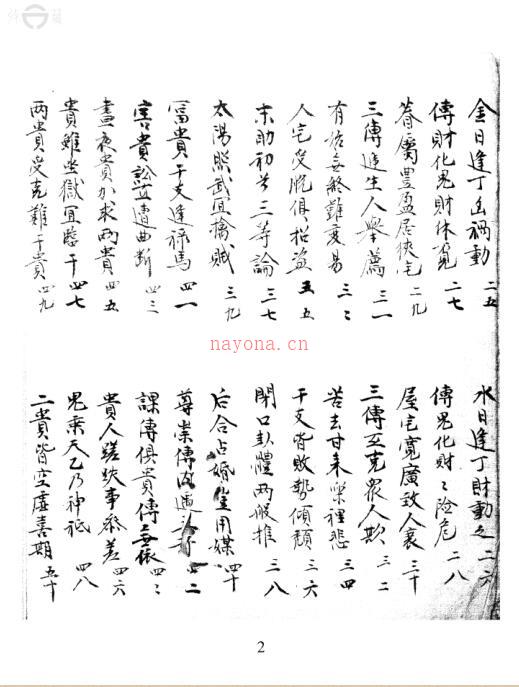 金日逢丁凶禍動 二五
水日逢丁財動之 二六
傳財化鬼財休覓 二七
傳鬼化財〻險危 二八
眷屬豐盈居狹宅 二九
屋宅寬廣致人衰 三十
三傳遞生人舉薦 三一
三傳互克眾人欺 三二
有始無終難變易 三〻
苦去甘來樂裡悲 三四
人宅受脫俱招盜 五
干支皆敗勢傾頹 三六
末助初兮三等論 三七
閉口卦體兩般推 三八
太陽照武宜擒賊 三九
后合占婚豈用媒 四十
富貴干支逢祿馬 四一
尊崇傳內遇 四二
害貴訟直遭曲斷 四三
課傳俱貴傳無依 四〻
晝夜貴加求兩貴 四五
貴人蹉跌事參差 四六
貴雖坐獄宜臨干 四七
鬼乘天乙乃神祇 四八
兩貴受克難干貴 四九
二貴皆空虛喜期 五十
nayona.cn
2